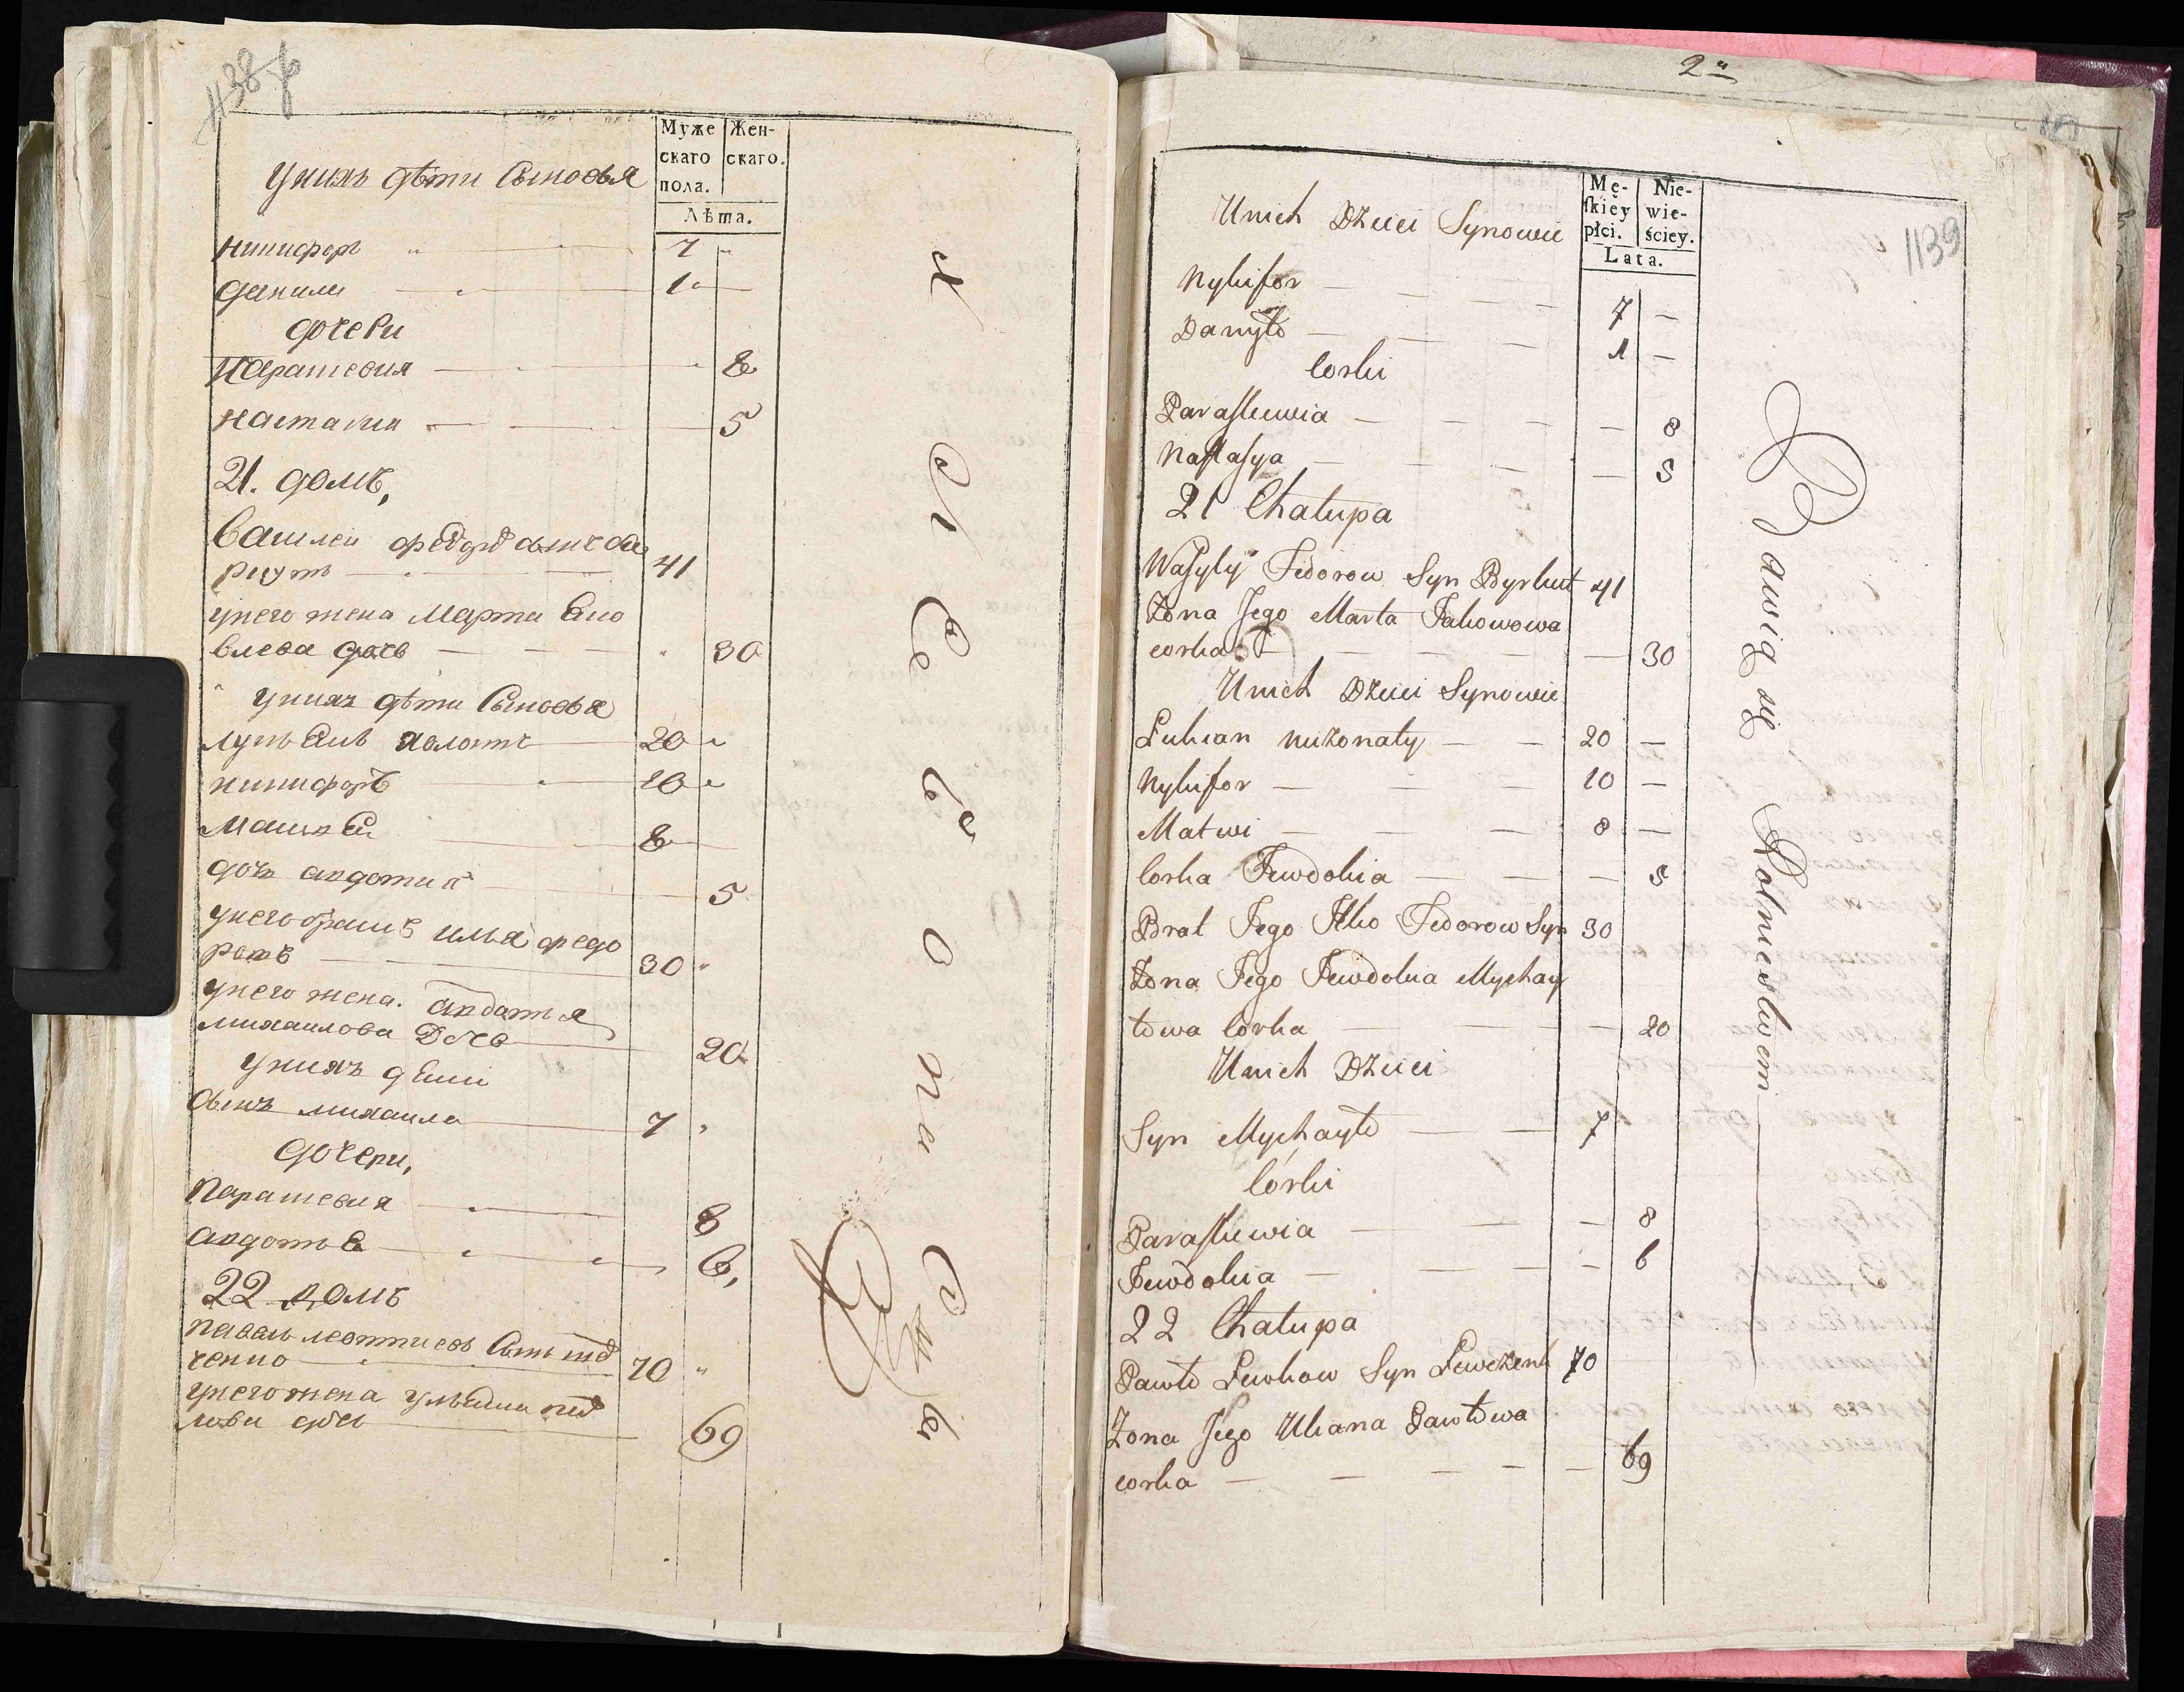 1138
Муже
скаго
пола.
Жен-
скаго.
Лѣта.
унихъ дѣти Сыновья
Никифоръ 7
Данило 1
дочери
Параскевия 8
Настасия 5
21. домъ,
Василей Федоровъ сынъ
41
унего жена Марта
влева дочь 30
унихъ дѣти Сыновья
20
никифоръ 10
8
дочь авдотия 5
унего братъ илья федо
ровъ 30
унего жена. авдотья
михайлова Дочь 20
унихъ дѣти
сынъ михаила 7
дочери,
Параскевия 8
авдотья 6,
22 домъ
павелъ сынъ
ченко 70
унего жена ульяна пав
лова дочь 69
2
1139
Mę-
ſkiey
płci.
Nie-
wie-
ściey.
Lata.
Unich Dzieci Synowie
Nykifor — 7 —
Danyło — 1 —
Corki
Paraſkiewia — 8
Naſtaſya — 5
21 Chałupa
Waſylÿ Fedorow Syn Byrkut 41
Żona Jego Marta Jakowowa
corka — 30
Unich Dzieci Synowie
Lukian nieżonaty — 20 —
Nykifor — 10 —
Matwi — 8 —
Corka Fewdokia — 5
Brat Jego Ilko Fedorow Syn 30
Żona Jego Fewdokia Mychay
łowa Corka — 20
Unich Dzieci
Syn Mychayło — 7
Córki
Paraſkiewia — 8
Fewdokia — 6
22 Chałupa
Pawło Lewkow Syn Lewczenk 70
Żona Jego Uliana Pawłowa
corka — 69
Bawią się Rolnictwem